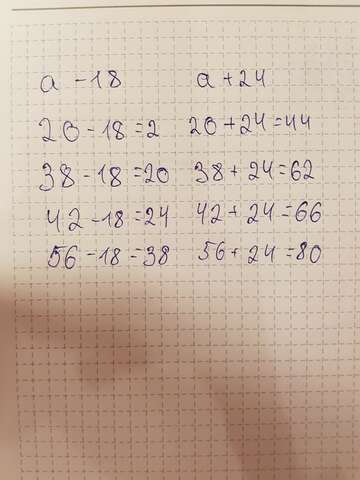 a - 18 a + 24
20 - 18 = 2 20 + 24 = 44
38 - 18 = 20 38 + 24 = 62
42 - 18 = 24 42 + 24 = 66
56 - 18 = 38 56 + 24 = 80